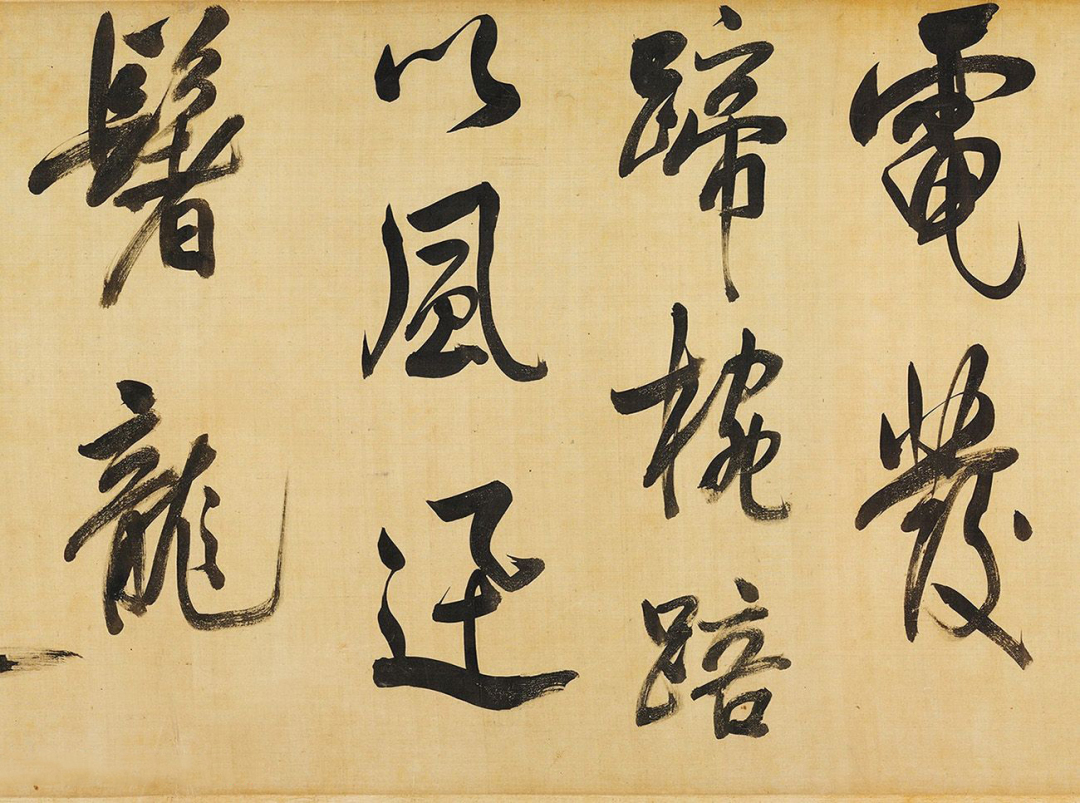 電發
蹄椀踣
以風迅
鬐龍